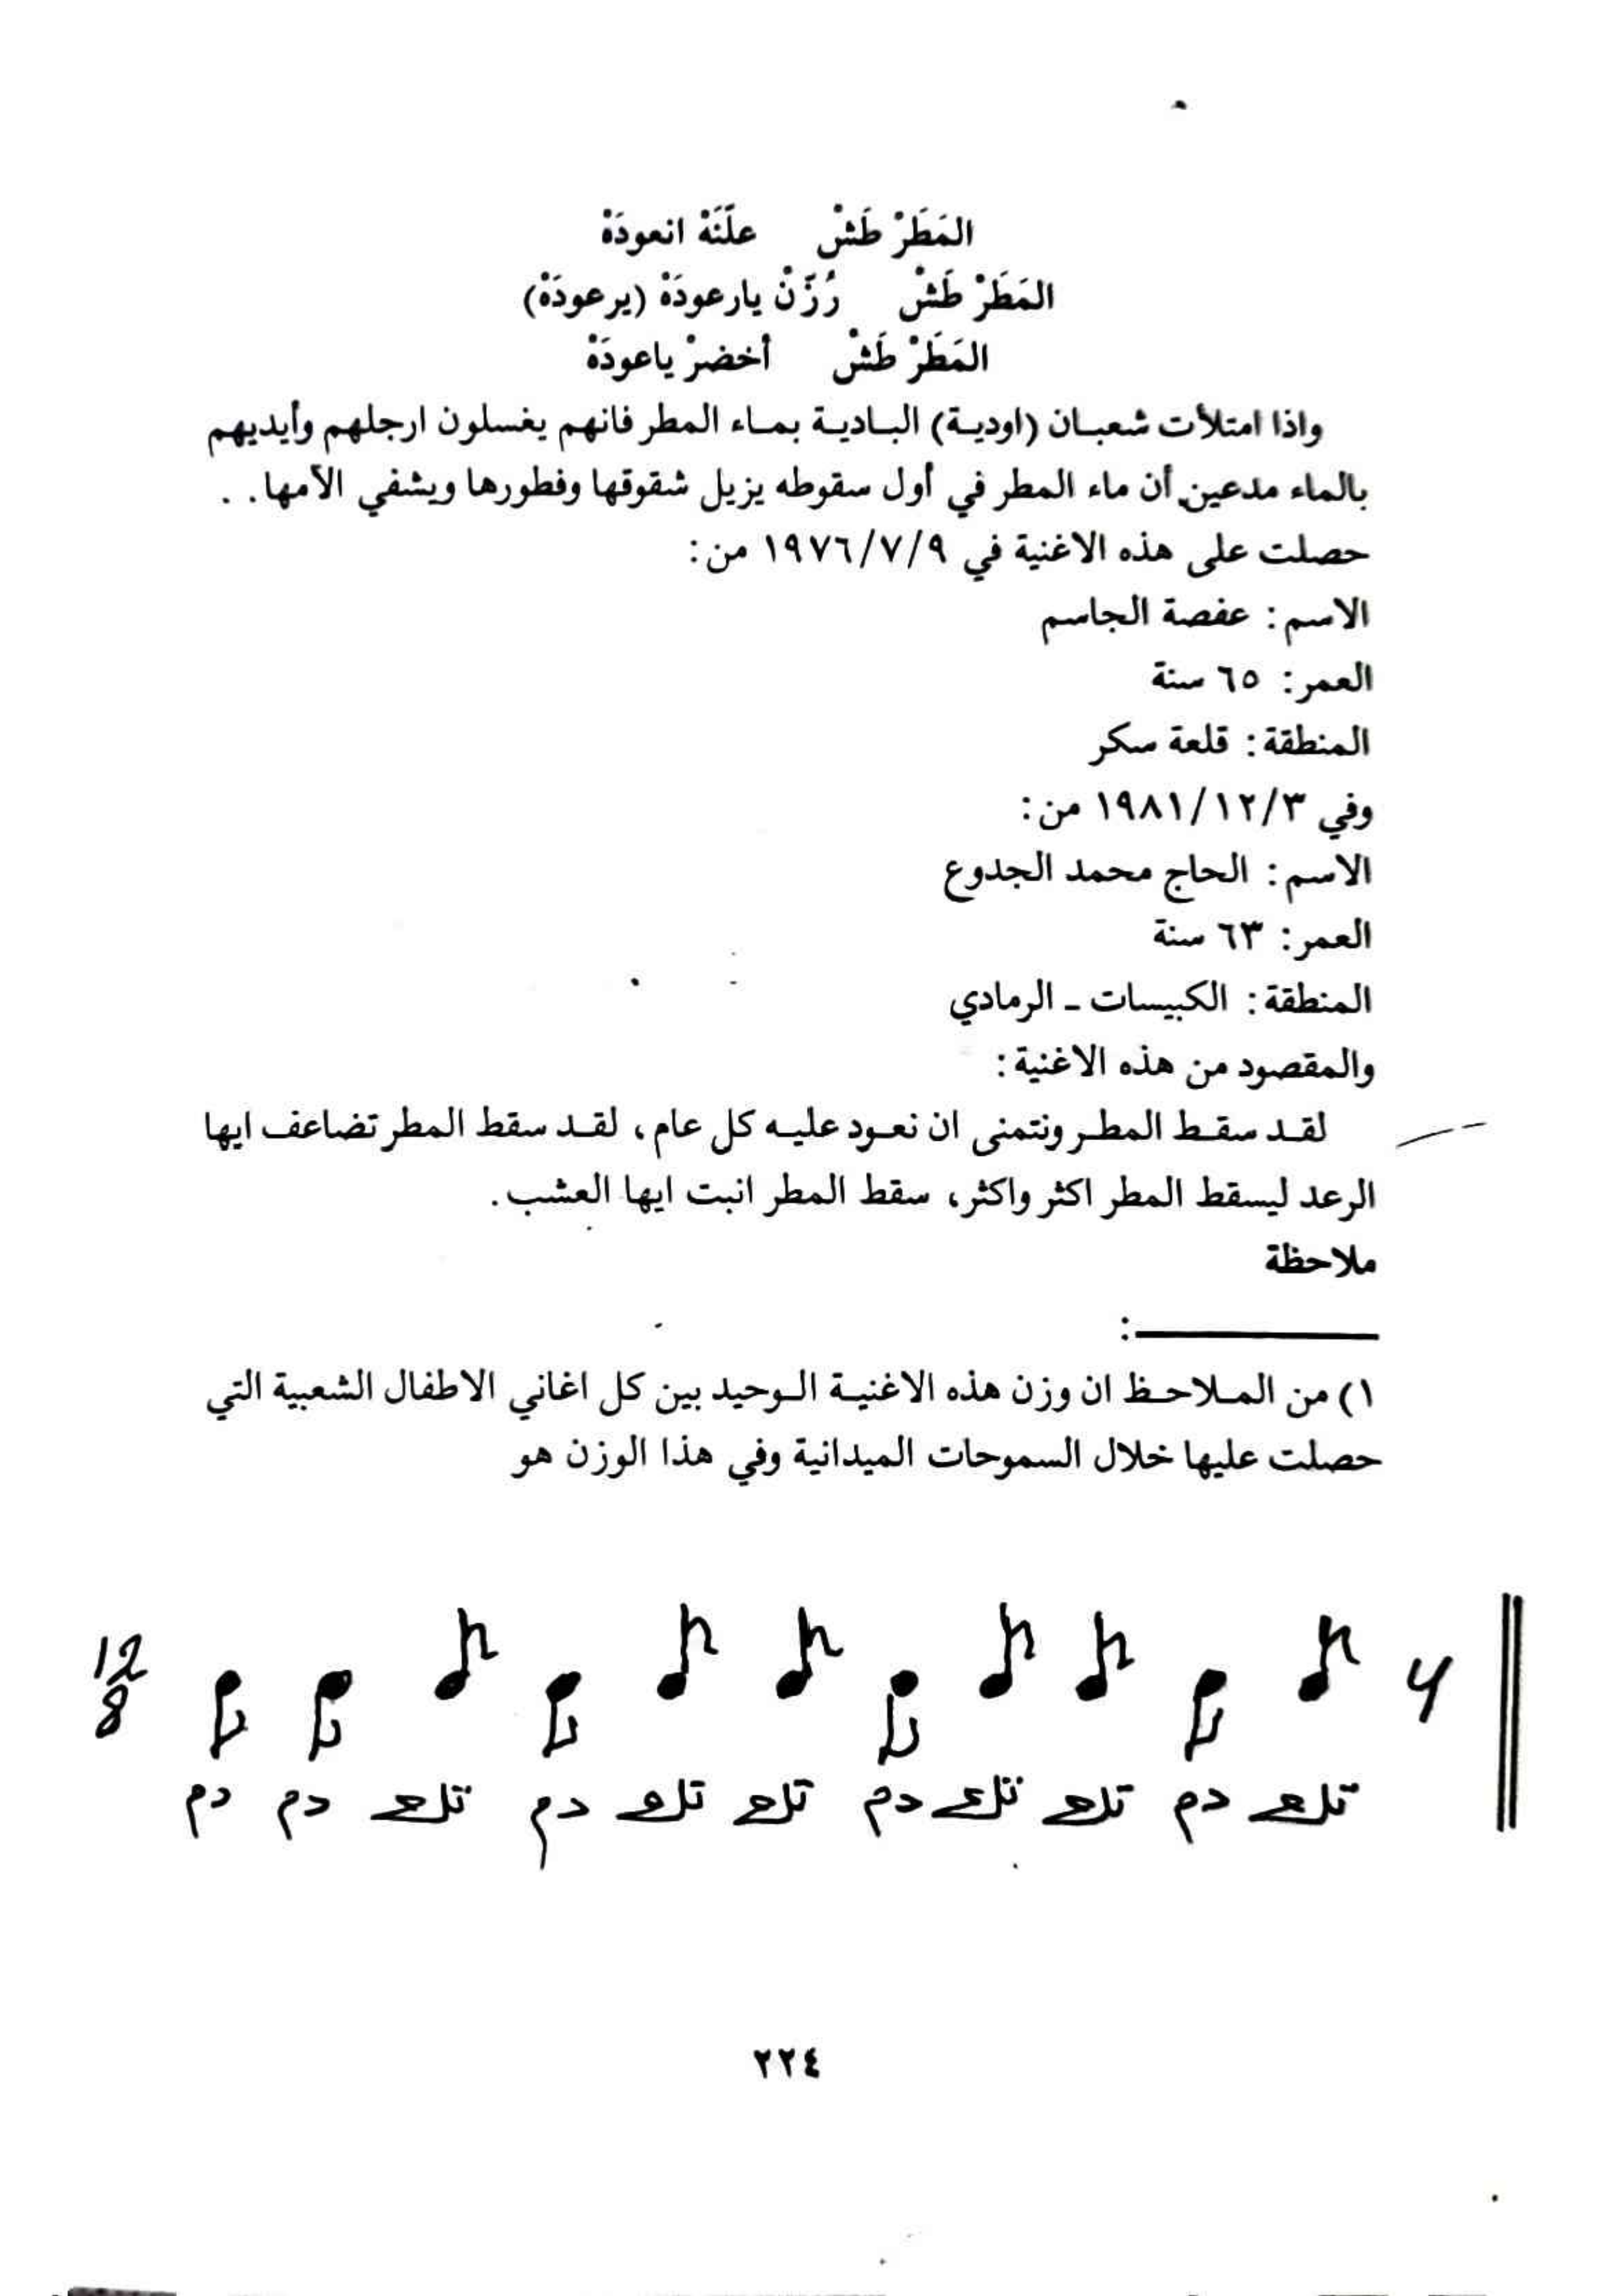 المَطَرْ طَشْ علَّنَهْ انعودَهْ
المَطَرْ طَشْ رُزَّنْ يارعودَهْ (يرعودَهْ)
المَطَرْ طَشْ أخضرْ ياعودَهْ
واذا امتلأت شعبان (اودية) البادية بماء المطر فانهم يغسلون ارجلهم وأيديهم
بالماء مدعين أن ماء المطر في أول سقوطه يزيل شقوقها وفطورها ويشفي الآمها. .
حصلت على هذه الاغنية في ١٩٧٦/٧/٩ من:
الاسم: عفصة الجاسم
العمر: ٦٥ سنة
المنطقة: قلعة سكر
وفي ١٩٨١/١٢/٣ من:
الاسم: الحاج محمد الجدوع
العمر: ٦٣ سنة
المنطقة: الكبيسات ـ الرمادي
والمقصود من هذه الاغنية:
لقد سقط المطر ونتمنى ان نعود عليه كل عام، لقد سقط المطر تضاعف ايها
الرعد ليسقط المطر اكثر واكثر، سقط المطر انبت ايها العشب.
ملاحظة
:
١) من الملاحظ ان وزن هذه الاغنية الوحيد بين كل اغاني الاطفال الشعبية التي
حصلت عليها خلال السموحات الميدانية وفي هذا الوزن هو
12/8
دم دم تك دم تك تك دم تك تك دم تك
٢٢٤